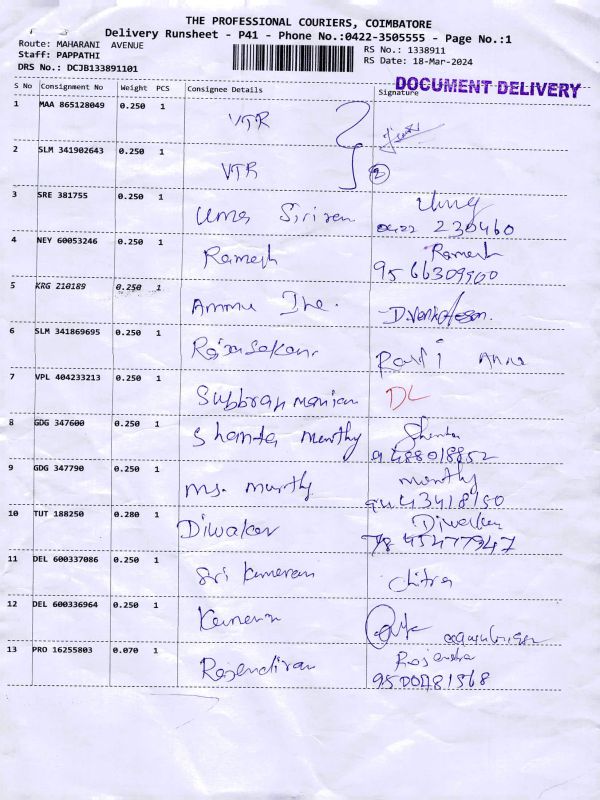 THE PROFESSIONAL COURIERS, COIMBATORE
Delivery Runsheet - P41 - Phone No.:0422-3505555 - Page No.:1
Route: MAHARANI AVENUE
RS No.: 1338911
Staff: PAPPATHI
RS Date: 18-Mar-2024
DRS No.: DCJB133891101
DOCUMENT DELIVERY
S No Consignment No Weight PCS Consignee Details Signature
1 MAA 865128049 0.250 1 VTR
2 SLM 341902643 0.250 1 VTR 2
3 SRE 381755 0.250 1 Uma
0422 230460
4 NEY 60053246 0.250 1 Ramesh Ramesh
9566309900
5 KRG 210189 0.250 1 Ammu
6 SLM 341869695 0.250 1 Rajasekaran
7 VPL 404233213 0.250 1 Subbramanian DL
8 GDG 347600 0.250 1 Shanta Murthy Shanta
9488018852
9 GDG 347790 0.250 1 Ms. Murthy Murthy
9443418150
10 TUT 188250 0.280 1 Diwakar Diwakar
7845477947
11 DEL 600337086 0.250 1 Sri Kumaran Chitra
12 DEL 600336964 0.250 1
13 PRO 16255803 0.070 1 Rajendiran Rajendra